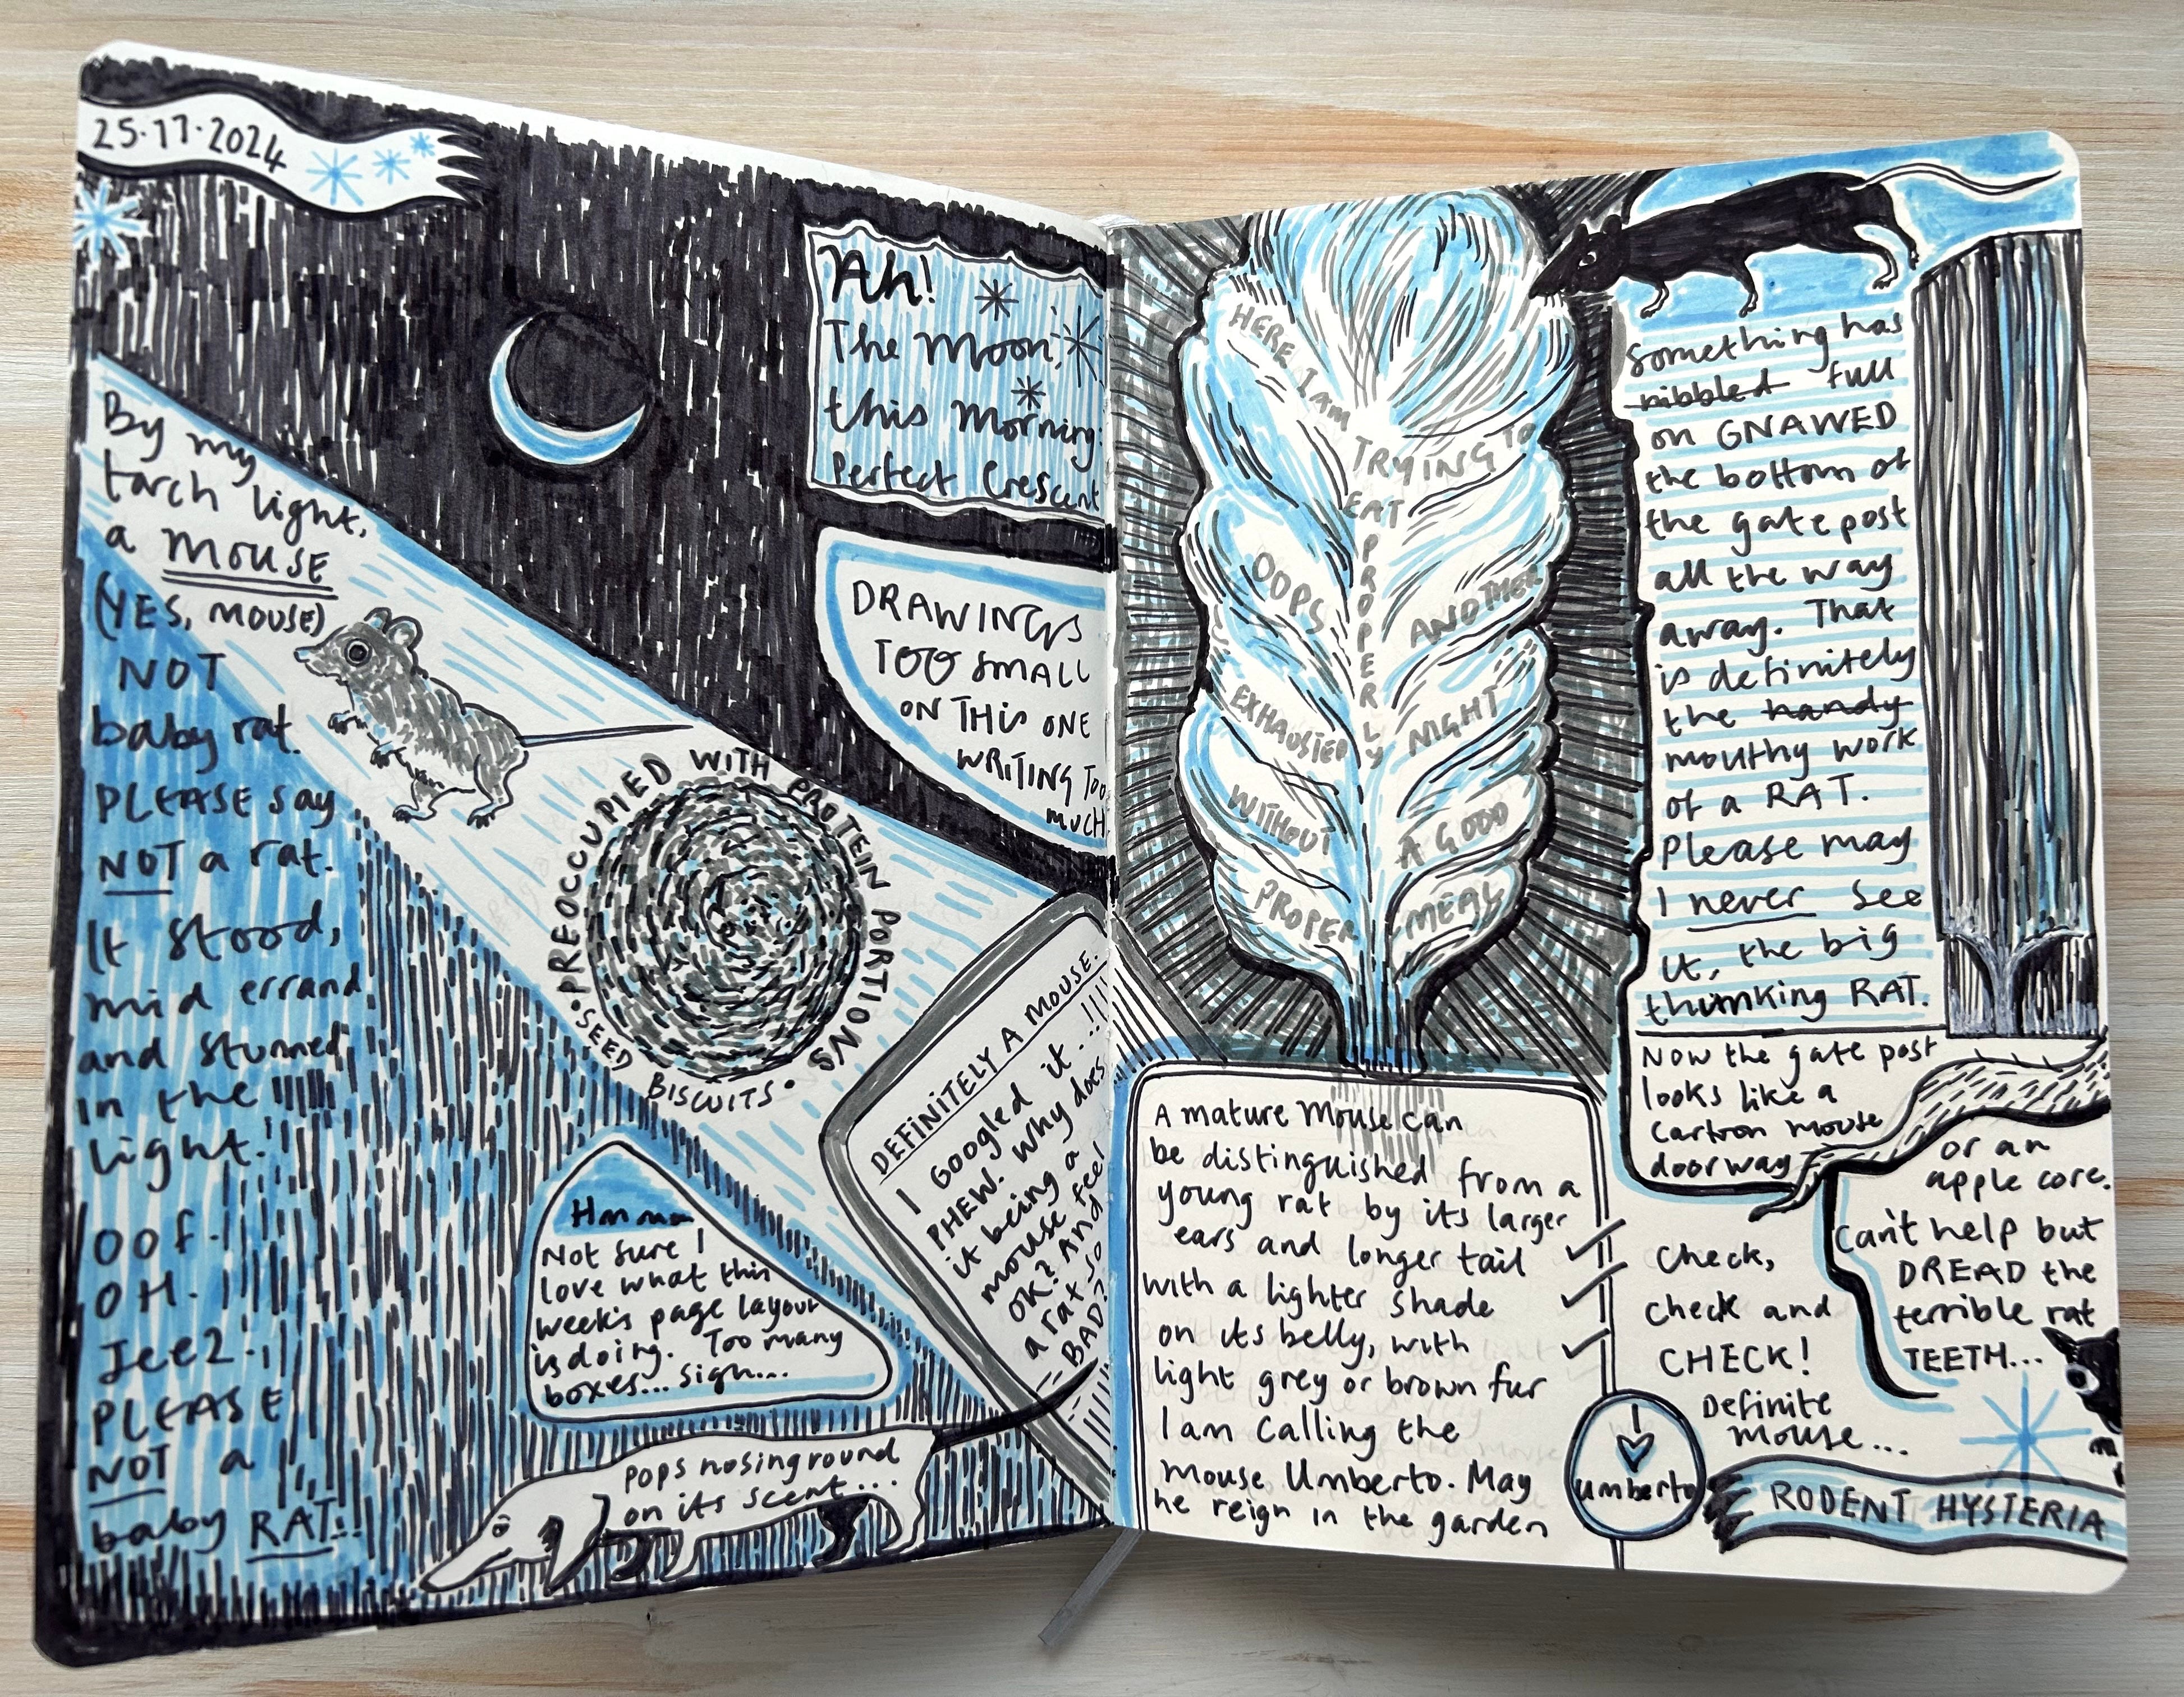 25·11·2024
By my
torch light,
a mouse
(YES, MOUSE)
NOT
baby rat.
PLEASE say
NOT a rat.
It stood,
mid errand
and stunned
in the
light!
OOF!
OH.
Jeez!
PLEASE
NOT a
baby RAT!!
Ah!
The Moon,
this Morning:
Perfect Crescent
DRAWINGS
TOO SMALL
ON THIS ONE
WRITING TOO
MUCH
PREOCCUPIED WITH PROTEIN PORTIONS
• SEED BISCUITS •
Hmmm
Not sure I
love what this
weeks page layout
is doing. Too many
boxes... sigh...
DEFINITELY A MOUSE.
I Googled it..!!!!
PHEW. Why does
it being a
mouse feel
OK? And
a rat so
BAD?
Pops nosing round
on its scent...
HERE I am
TRYING TO
EAT
PROPERLY
OOPS
ANOTHER
NIGHT
EXHAUSTED
WITHOUT
A GOOD
PROPER
MEAL
Something has
nibbled full
on GNAWED
the bottom of
the gate post
all the way
away. That
is definitely
the handy
mouthy work
of a RAT.
Please may
I never see
it, the big
thunking RAT.
Now the gate post
looks like a
cartoon mouse
doorway
or an
apple core.
Can't help but
DREAD the
terrible rat
TEETH...
A mature Mouse can
be distinguished from a
young rat by its larger
ears and longer tail
with a lighter shade
on its belly, with
light grey or brown fur
I am calling the
mouse Umberto. May
he reign in the garden
Check,
check and
CHECK!
Definite
mouse...
umberto
RODENT HYSTERIA